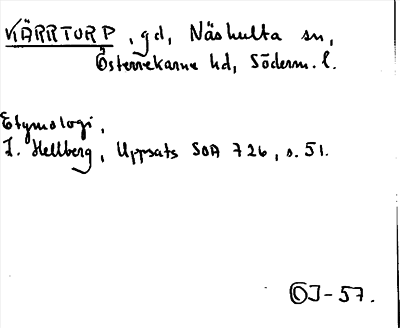 KÄRRTORP, gd, Näshulta sn,
Österrekarne hd, Söderm. l.
Etymologi,
L. Hellberg, Uppsats SOA 726, s. 51.
OJ-57.